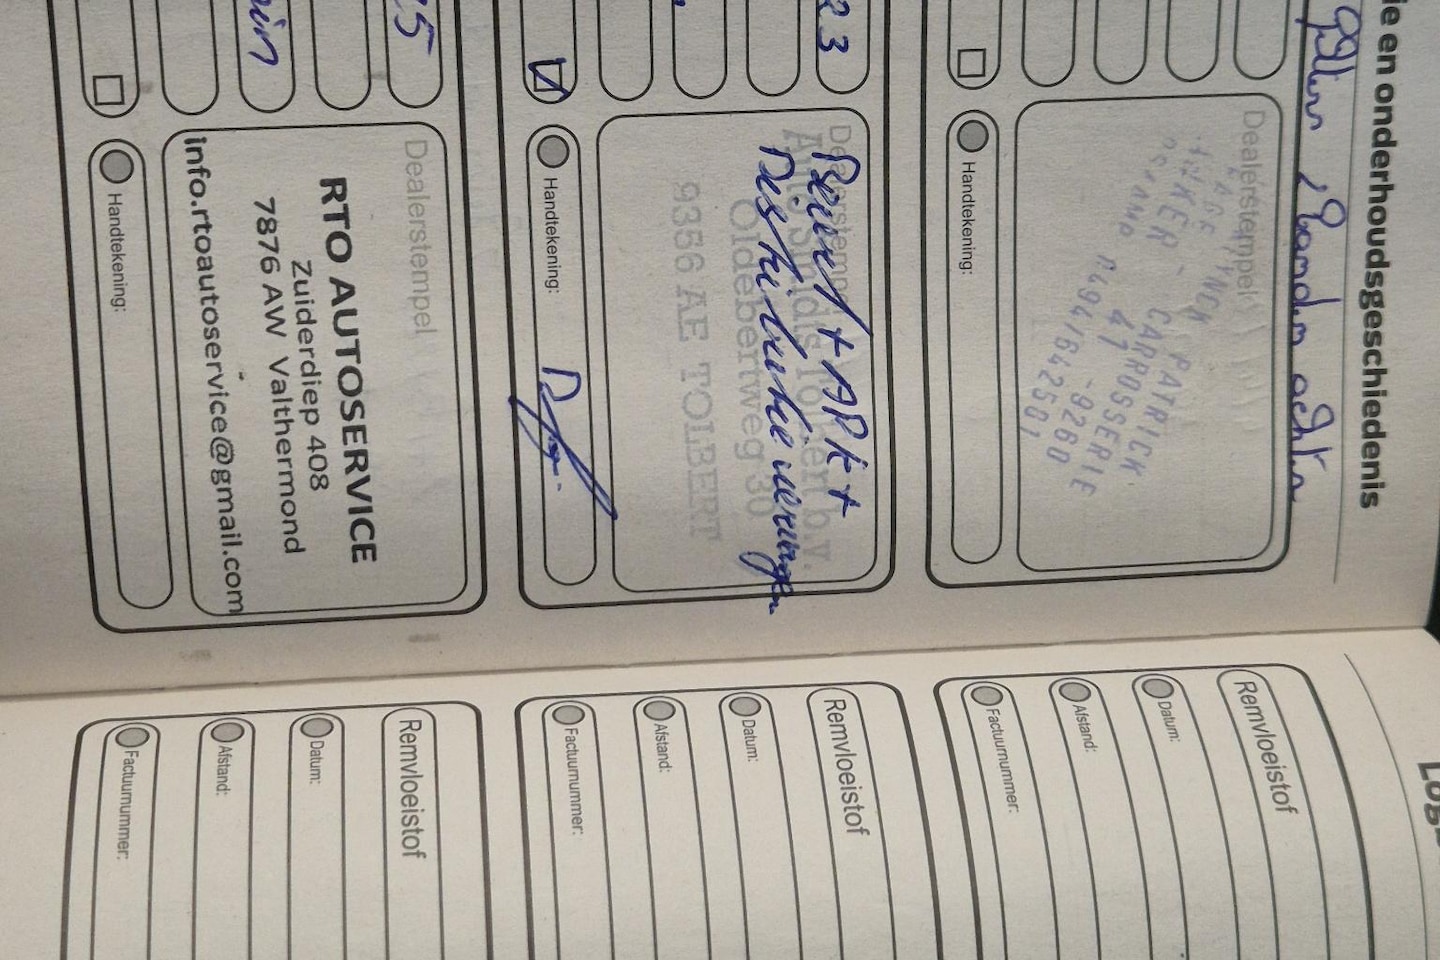 ie en onderhoudsgeschiedenis
Banden achter
Dealerstempel
PATRICK
CARROSSERIE
47 -9260
0494/642501
Handtekening:
23
Dealerstempel
Beurt + APK +
Oldebertweg 30
9356 AE TOLBERT
Handtekening:
25
Dealerstempel
RTO AUTOSERVICE
Zuiderdiep 408
7876 AW Valthermond
info.rtoautoservice@gmail.com
Handtekening:
Remvloeistof
Datum:
Afstand:
Factuurnummer:
Remvloeistof
Datum:
Afstand:
Factuurnummer:
Remvloeistof
Datum:
Afstand:
Factuurnummer: